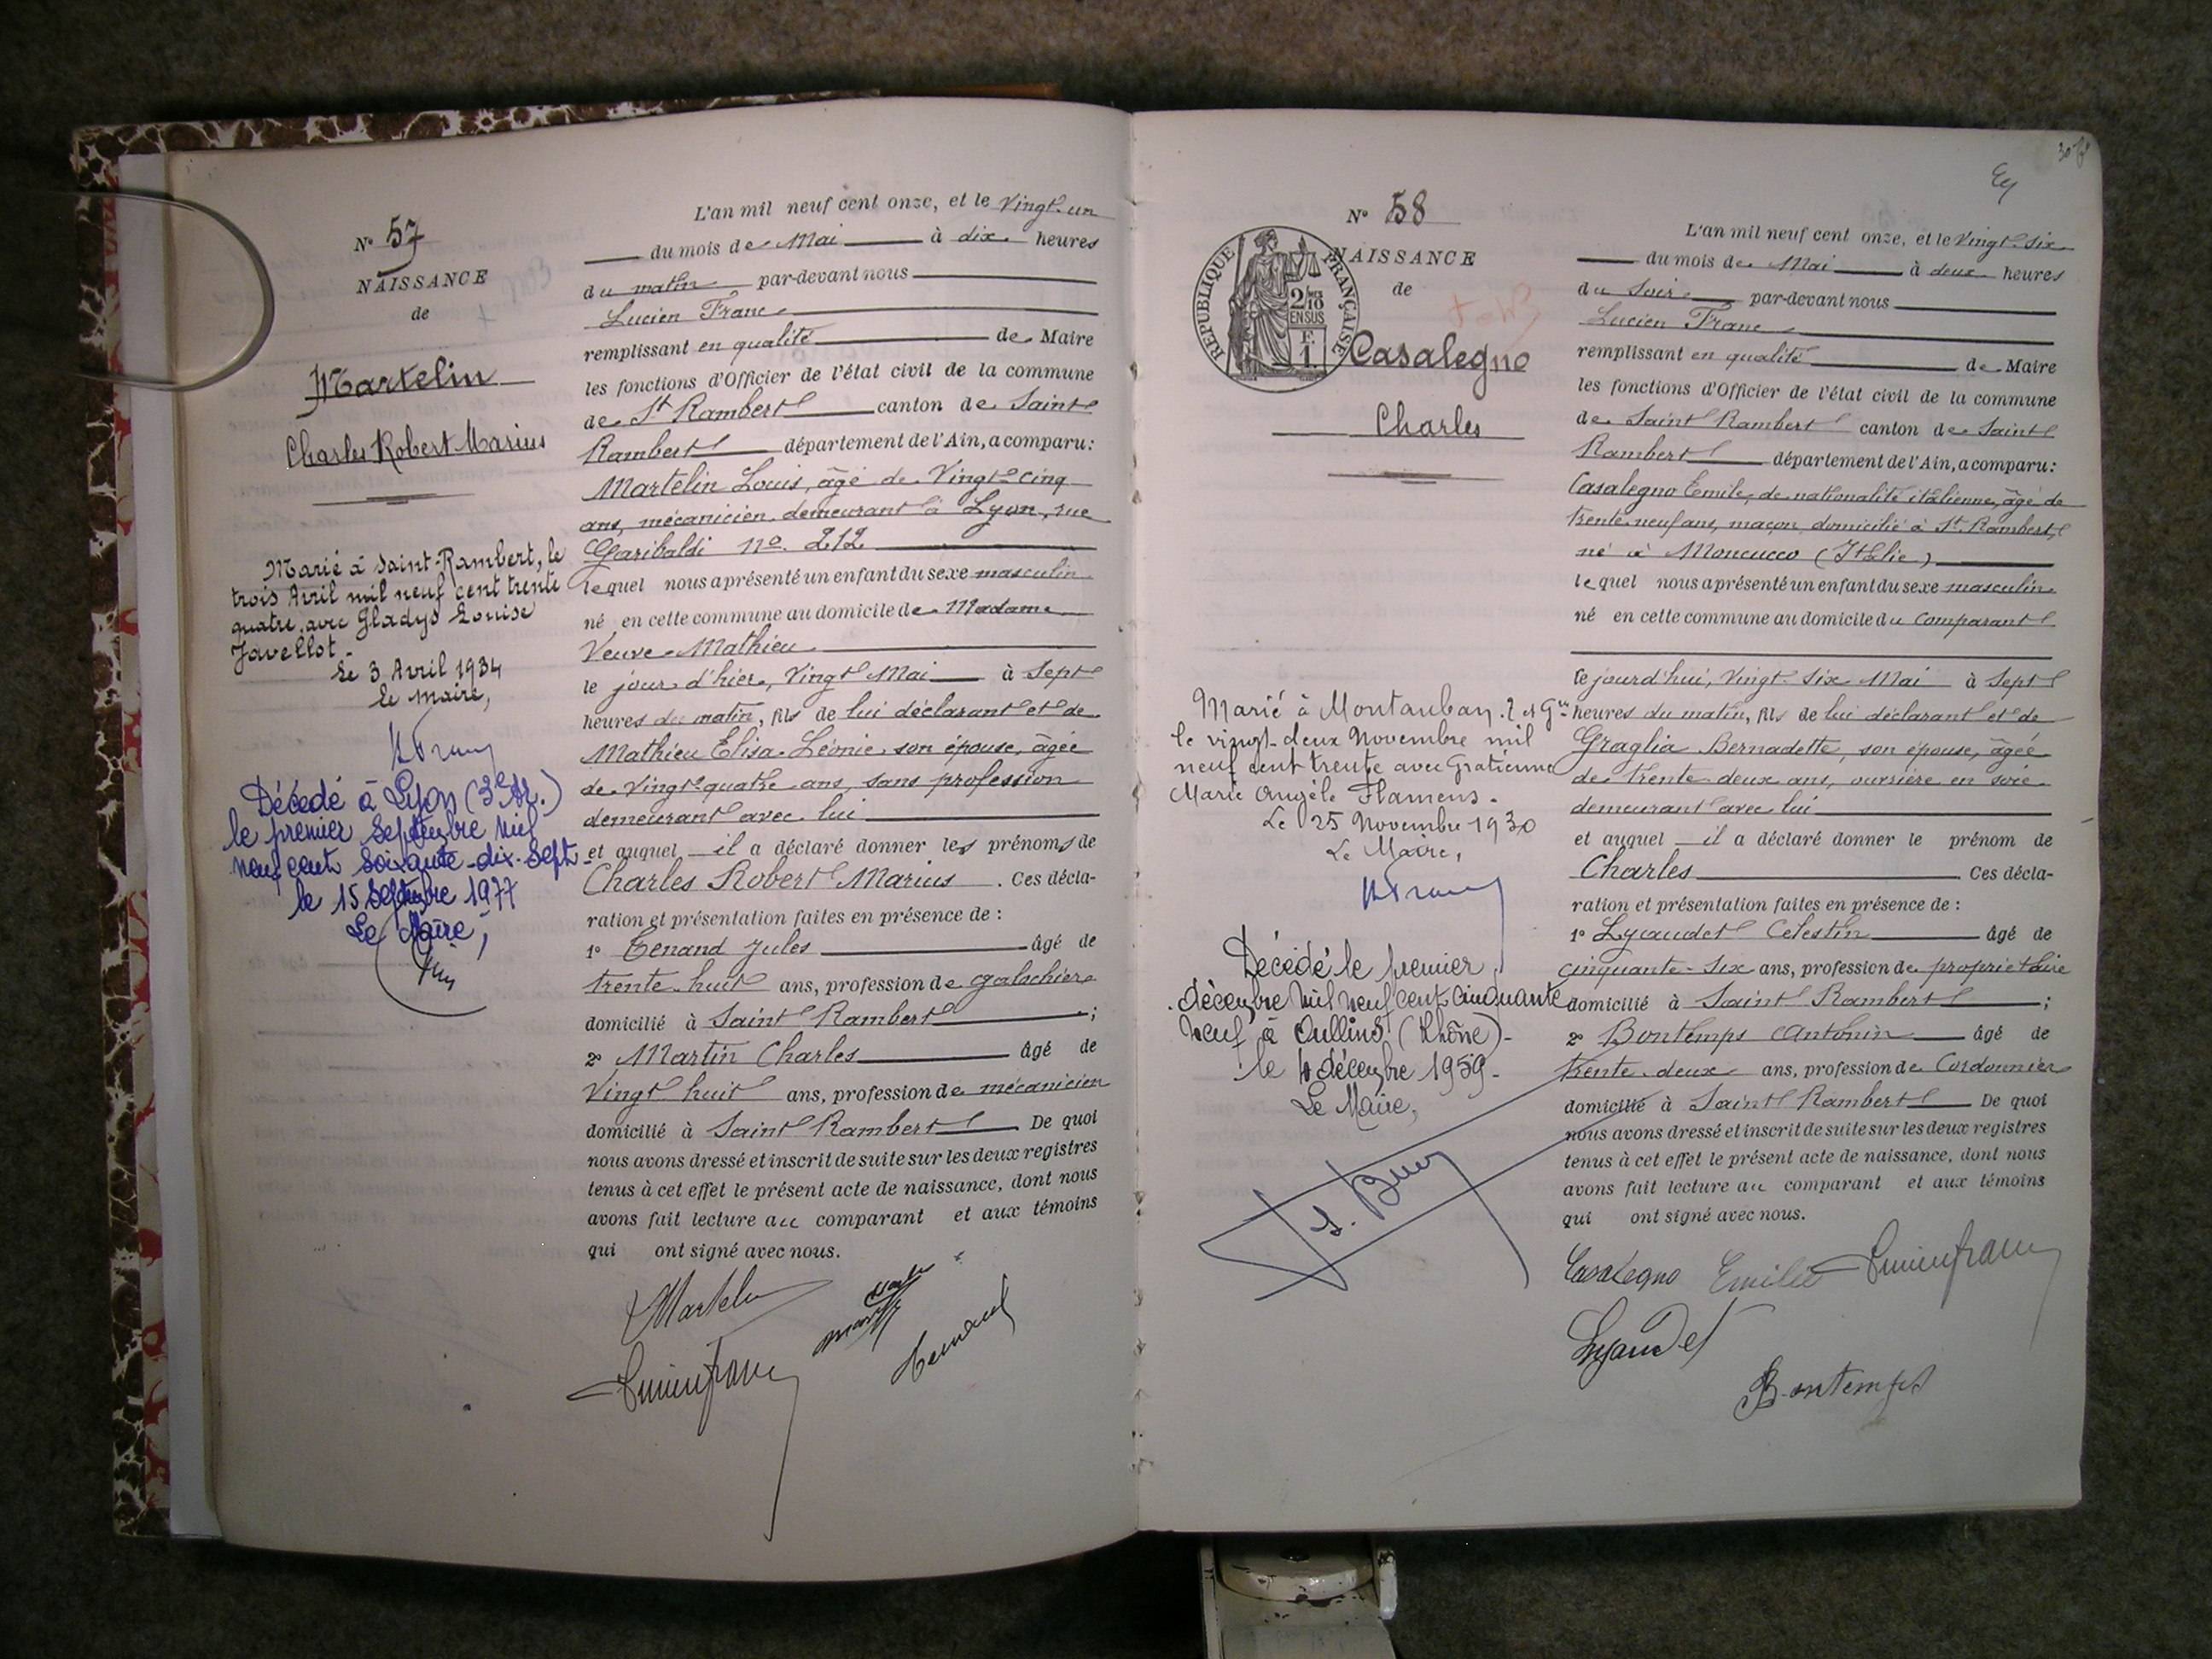 N° 57
NAISSANCE
de
Martelin
Charles Robert Marius
Marié à Saint-Rambert, le
trois Avril mil neuf cent trente
quatre, avec Gladys Louise
Javellot.
Le 3 Avril 1934
le maire,
Décédé à Lyon (3e Ar.)
le premier Septembre mil
neuf cent soixante-dix-sept
le 15 Septembre 1977
Le Maire,
L'an mil neuf cent onze, et le Vingt-un
du mois de Mai à dix heures
du matin par-devant nous
Lucien Franc
remplissant en qualité de Maire
les fonctions d'Officier de l'état civil de la commune
de St Rambert canton de Saint
Rambert département de l'Ain, a comparu:
Martelin Louis, âgé de Vingt-cinq
ans, mécanicien, demeurant à Lyon, rue
Garibaldi no. 212
lequel nous a présenté un enfant du sexe masculin
né en cette commune au domicile de Madame
Veuve Mathieu
le jour d'hier, Vingt Mai à Sept
heures du matin, fils de lui déclarant et de
Mathieu Elisa Léonie, son épouse, âgée
de Vingt-quatre ans, sans profession
demeurant avec lui
et auquel il a déclaré donner les prénoms de
Charles Robert Marius. Ces décla-
ration et présentation faites en présence de :
1° Tenand Jules âgé de
trente-huit ans, profession de galochier
domicilié à Saint Rambert ;
2° Martin Charles âgé de
Vingt huit ans, profession de mécanicien
domicilié à Saint Rambert De quoi
nous avons dressé et inscrit de suite sur les deux registres
tenus à cet effet le présent acte de naissance, dont nous
avons fait lecture au comparant et aux témoins
qui ont signé avec nous.
Martelin
Tenand
Lucien Franc
N° 58
NAISSANCE
de
RÉPUBLIQUE FRANÇAISE
2/10
EN SUS
F.
1.
Casalegno
Charles
Marié à Montauban
le vingt-deux Novembre mil
neuf cent trente avec Gratienne
Marie Angèle Flamens.
Le 25 Novembre 1930
Le Maire,
Décédé le premier
décembre mil neuf cent cinquante
neuf à Oullins (Rhône)-
le 4 décembre 1959-
Le Maire,
L'an mil neuf cent onze, et le Vingt-six
du mois de Mai à deux heures
du Soir par-devant nous
Lucien Franc
remplissant en qualité de Maire
les fonctions d'Officier de l'état civil de la commune
de Saint Rambert canton de Saint
Rambert département de l'Ain, a comparu:
Casalegno Emile, de nationalité italienne, âgé de
trente neuf ans, maçon domicilié à St Rambert,
né à Moncucco (Italie)
lequel nous a présenté un enfant du sexe masculin
né en cette commune au domicile du Comparant
ce jourd'hui, Vingt-six Mai à Sept
heures du matin, fils de lui déclarant et de
Graglia Bernadette, son épouse, âgée
de trente-deux ans, ouvrière en soie
demeurant avec lui
et auquel il a déclaré donner le prénom de
Charles Ces décla-
ration et présentation faites en présence de :
1° Lyaudet Célestin âgé de
cinquante-six ans, profession de propriétaire
domicilié à Saint Rambert ;
2° Bontemps Antonin âgé de
trente-deux ans, profession de Cordonnier
domicilié à Saint Rambert De quoi
nous avons dressé et inscrit de suite sur les deux registres
tenus à cet effet le présent acte de naissance, dont nous
avons fait lecture au comparant et aux témoins
qui ont signé avec nous.
Casalegno Emilio Lucien Franc
Lyaudet
Bontemps